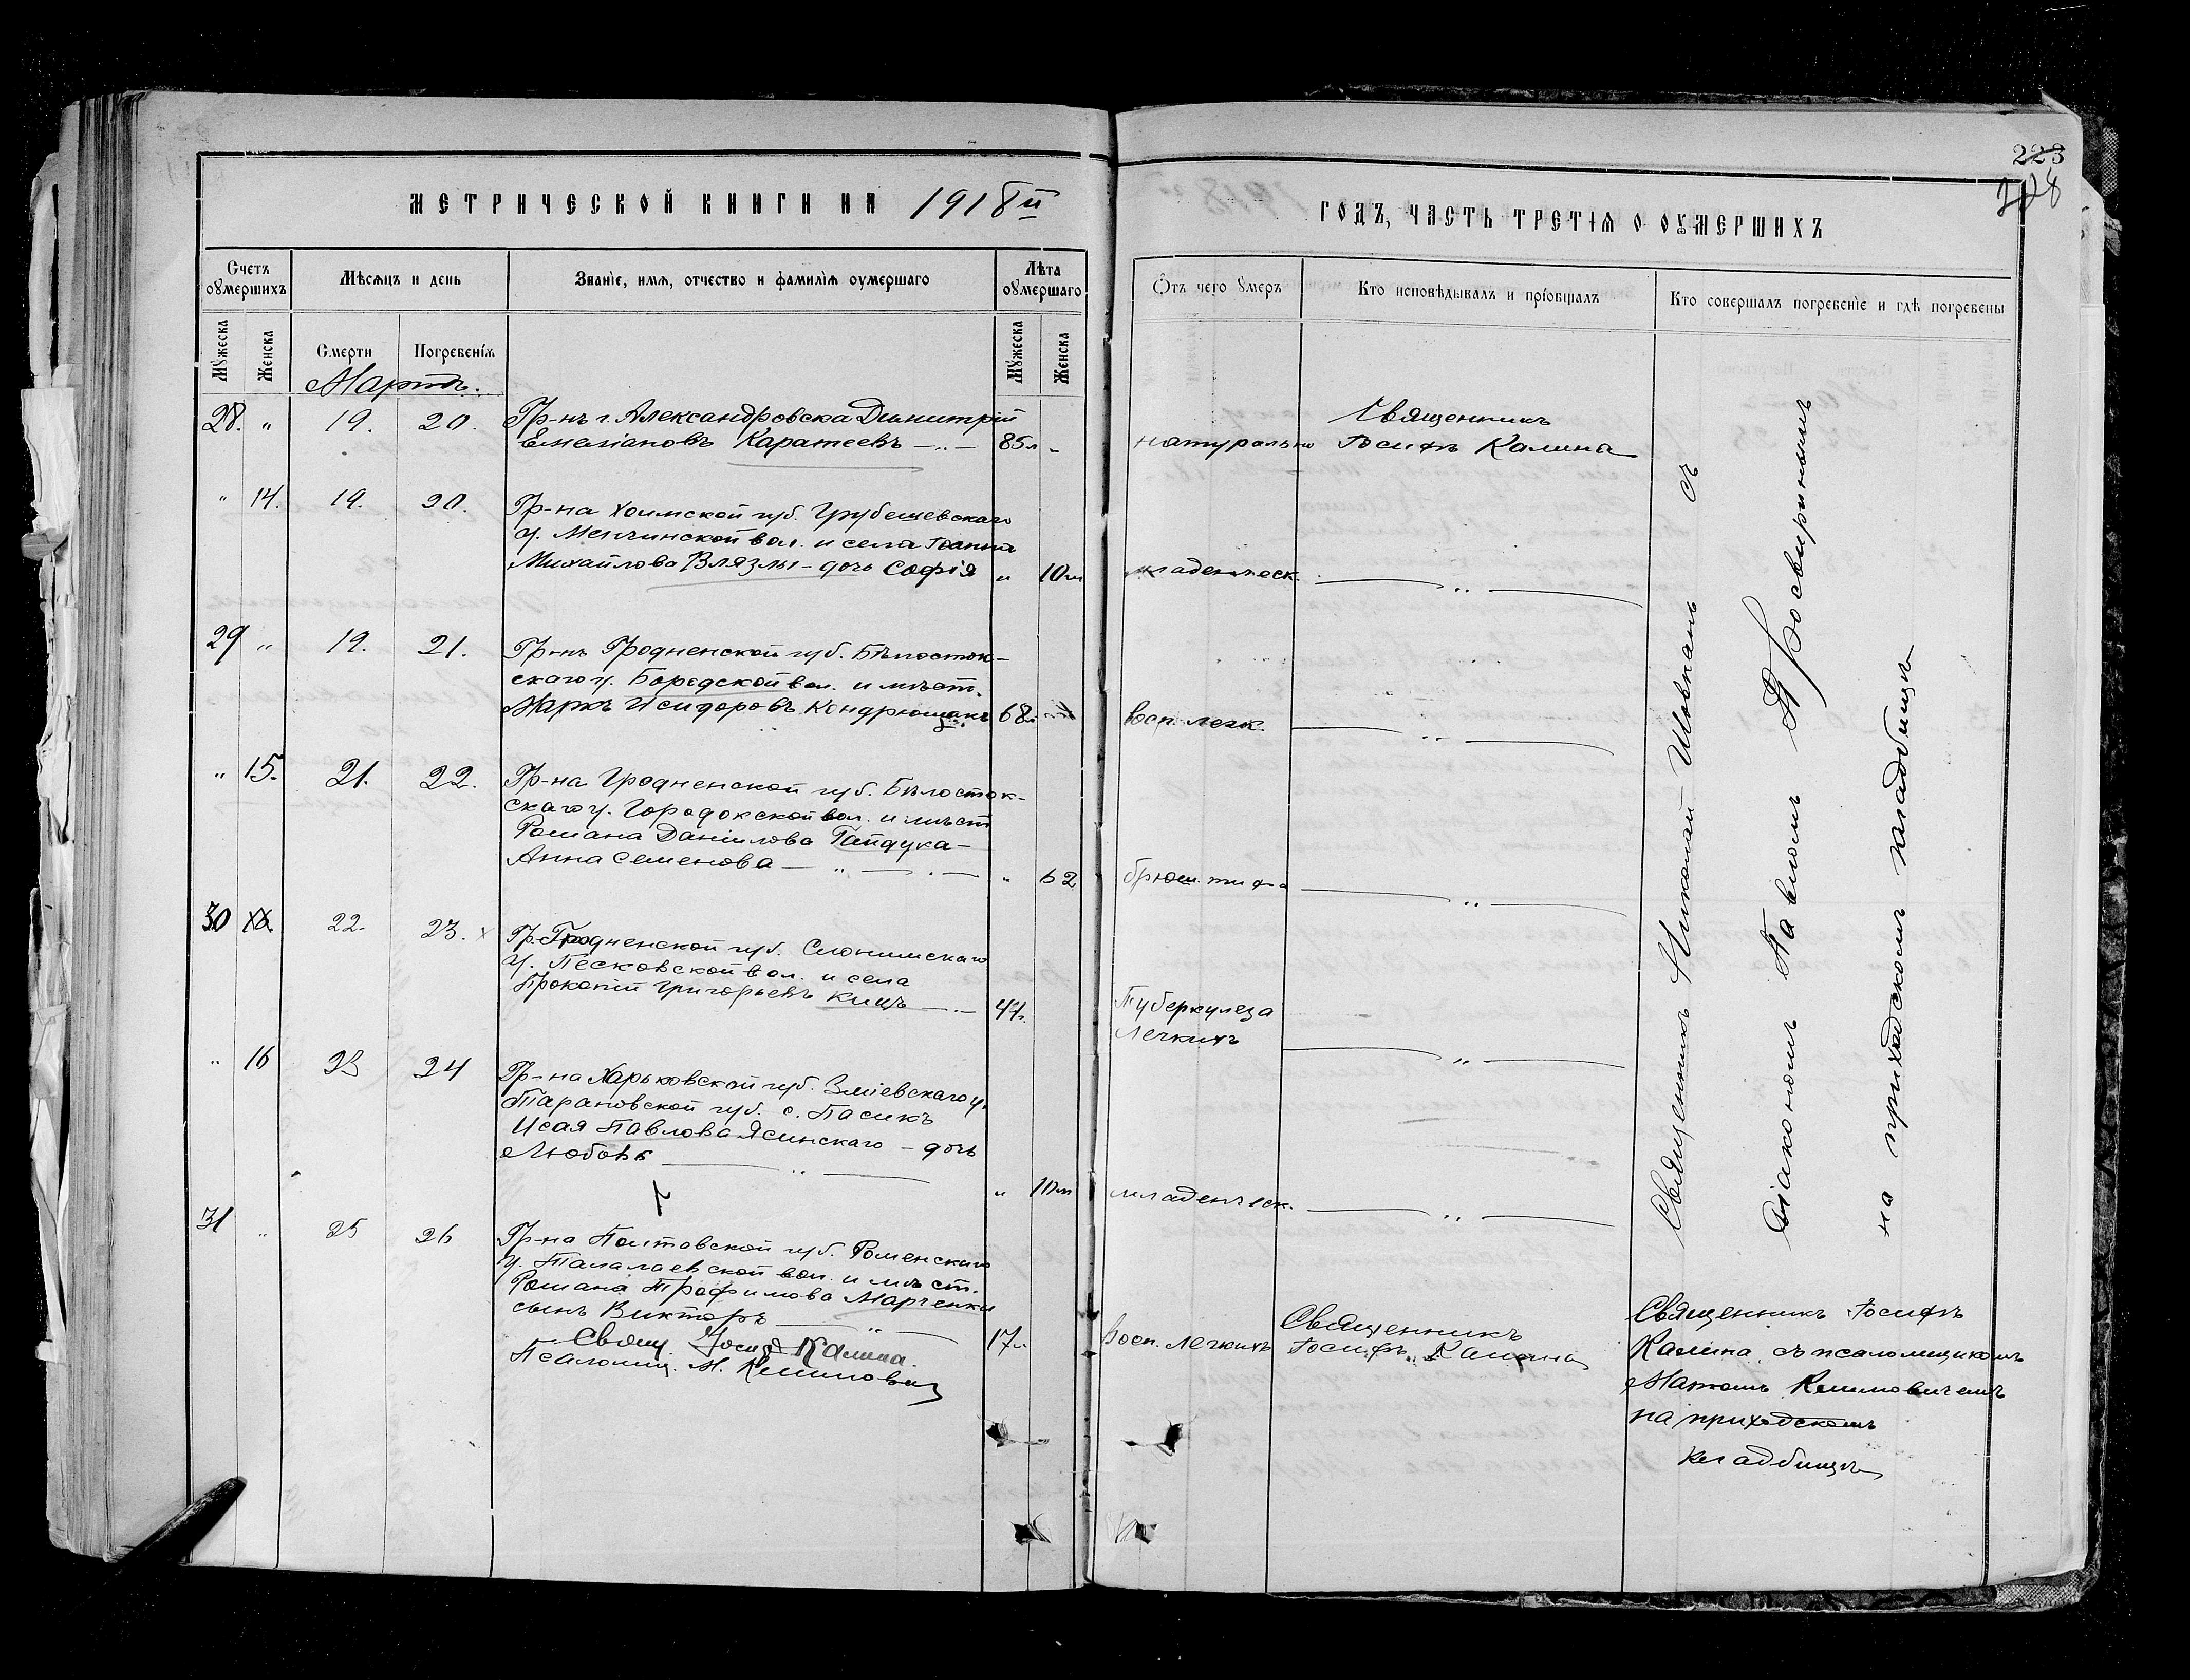 223
МЕТРИЧЕСКОЙ КНИГИ НА 1918й
ГОДЪ, ЧАСТЬ ТРЕТІЯ О ОУМЕРШИХЪ
Счетъ оумершихъ
Мѣсяцъ и день
Званіе, имя, отчество и фамилія оумершаго
Лѣта оумершаго
Отъ чего умеръ
Кто исповѣдывалъ и пріобщалъ
Кто совершалъ погребеніе и гдѣ погребены
Мужеска
Женска
Смерти
Погребенія
Мужеска
Женска
Мартъ.
28. " 19. 20. Гр-нъ г. Александровска Димитрій
Емеліановъ Каратеевъ — " — 85 л -
натурально
Священникъ
Іосифъ Калина
" 14. 19. 20. Гр-на Холмской губ. Грубешевскаго
у. Менчинской вол. и села Іоанна
Михайлова Влязлы - дочь Софія " 10 м
младенческ. — " —
29 " 19. 21. Гр-нъ Гродненской губ. Бѣлосток-
скаго у. Городской вол. и мѣст.
Маркъ Исидоровъ Кондрюшакъ 68 л.
восп. легк. — " —
" 15. 21. 22. Гр-на Гродненской губ. Бѣлосток-
скаго у. Городокской вол. и мѣст
Романа Даніилова Гайдука -
Анна Семенова — " — . — " 62
брюш. тифа — " —
30 22. 23. x Гр. Гродненской губ. Слонимскаго
у. Песковской вол. и села
Прокопій Григорьевъ Кищъ — . — 47.
Туберкулеза
Легкихъ — " —
" 16 23 24 Гр-на Харьковской губ. Зміевскаго у.
Тарановской губ. с. Пасикъ
Исая Павлова Ясинскаго - дочь
Любовь — " — " 10 м
младенческ. — " —
31 " 25 26 Гр-на Полтавской губ. Роменскаго
у. Талалаевской вол. и мѣст.
Романа Трофимова Марченки
сынъ Викторъ — " — 17 л
восп. легкихъ
Священникъ
Іосифъ Калина
Свящ. Іосифъ Калина.
Псаломщ. М. Климовичъ
Священникъ Николай съ
діакономъ Павломъ Просвирнинымъ
на приходскомъ кладбищѣ
Священникъ Іосифъ
Калина съ псаломщикомъ
Климовичемъ
на приходскомъ
кладбищѣ